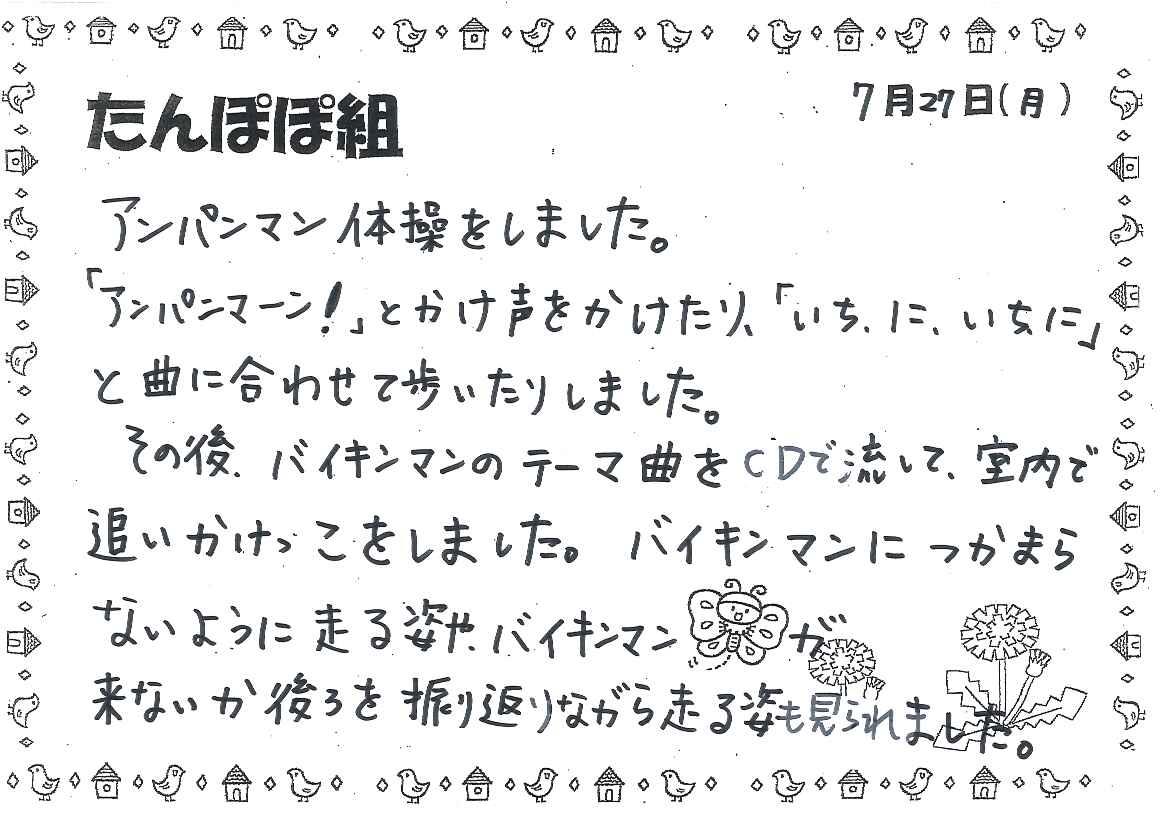 たんぽぽ組
7月27日(月)
アンパンマン体操をしました。
「アンパンマーン!」とかけ声をかけたり、「いち、に、いち、に」
と曲に合わせて歩いたりしました。
その後、バイキンマンのテーマ曲をCDで流して、室内で
追いかけっこをしました。バイキンマンにつかまら
ないように走る姿や、バイキンマンが
来ないか後ろを振り返りながら走る姿も見られました。